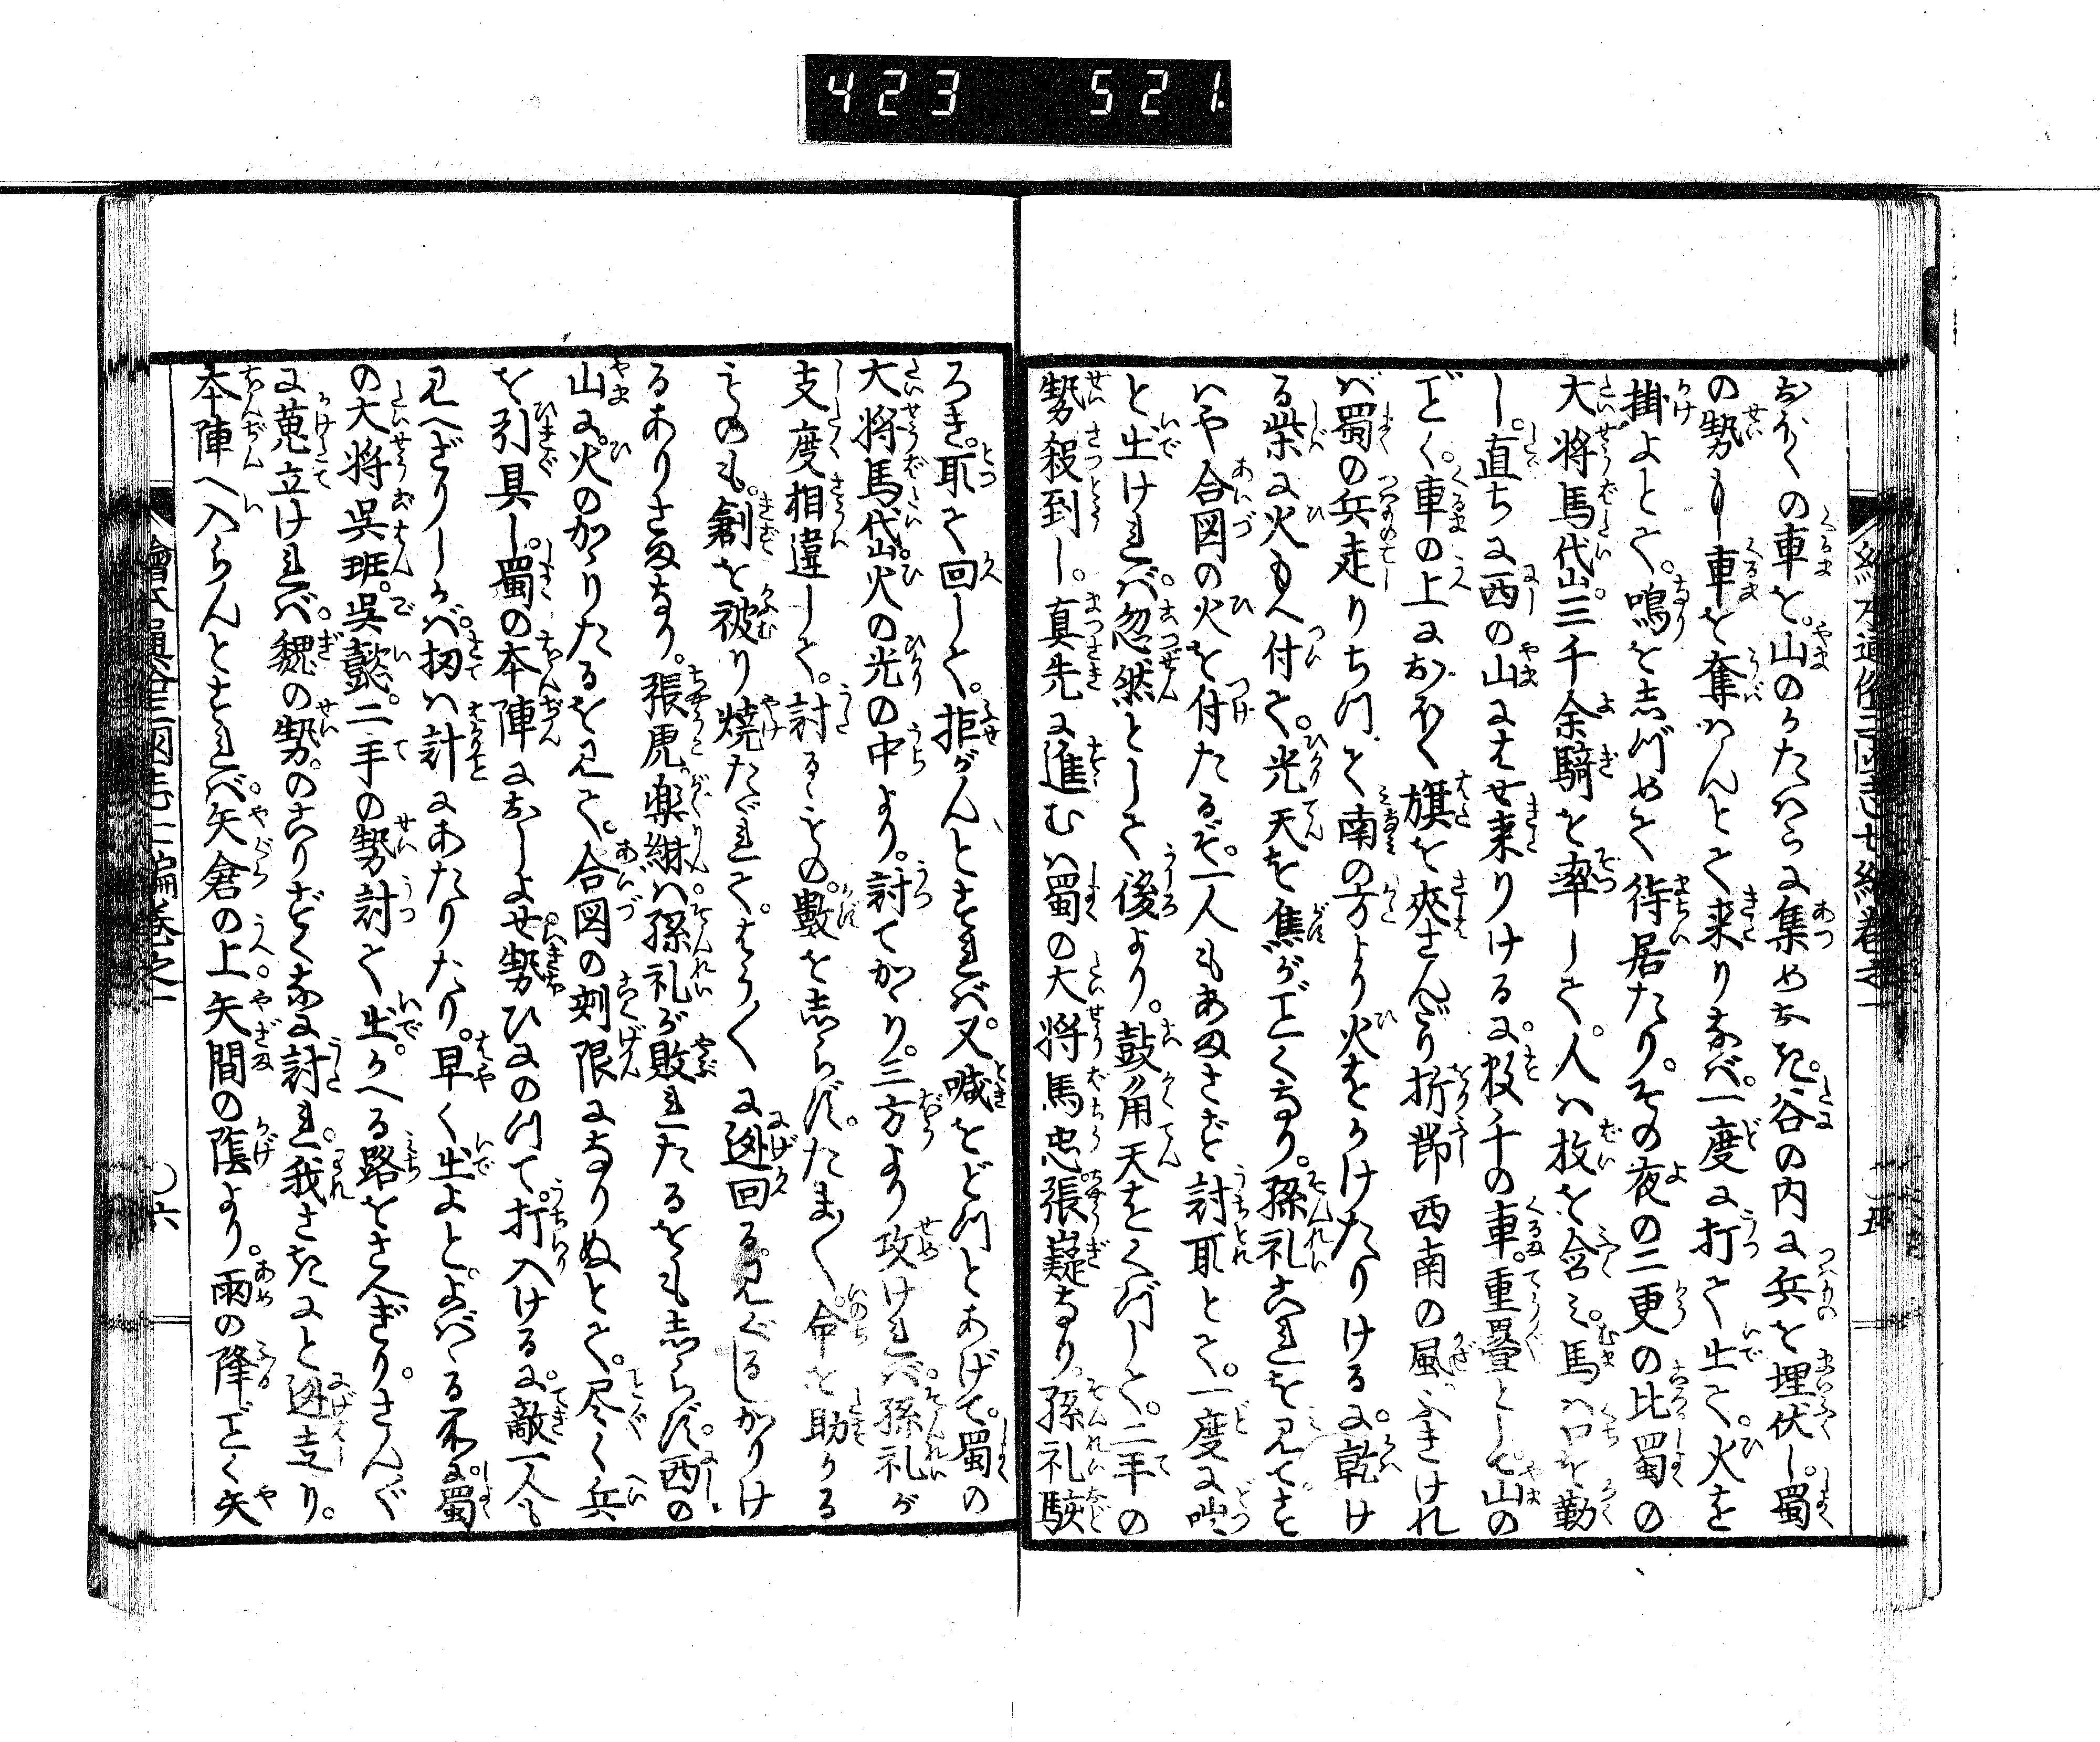 423 521
おほくの車を。山のかたはらに集めなき。谷の内に兵を埋伏し。蜀
の勢もし車を奪はんとて来りなば。一度に打て出て。火を
掛よとて。鳴を志づめて待居たり。その夜の二更の比蜀の
大将馬代。三千余騎を率して。人は枚を含み。馬は口を勒
し。直ちに西の山にはせ来りけるに。数千の車。重畳として。山の
ごとく。車の上におほく旗を夾さんだり折節西南の風ふきけれ
ば蜀の兵走りちつて南の方より火をかけたりけるに。乾け
る柴に火もへ付て。光天を焦がごとくなり。孫礼これを見て。す
はや合図の火を付たるぞ。一人もあまさず討取とて。一度に咄
と出ければ。忽然として後より。鼓角天をくづして。二手の
勢殺到し。真先に進むは蜀の大将馬忠。張嶷なり。孫礼駭
ろき。取て回して。拒がんとすれば。又喊をどつとあげて。蜀の
大将馬代。火の光の中より。討てかゝり。三方より攻ければ。孫礼が
支度相違して。討るゝもの。数を志らず。たま〱命を助かる
ものも。創を被り焼たゞれて。はう〱に逃回る。見ぐるしかりけ
るありさまなり。張虎。楽綝は孫礼が敗れたるをも志らず。西の
山に。火のかゝりたるを見て。合図の刻限になりぬとて。尽く兵
を引具し。蜀の本陣におしよせ勢ひにのつて。打入けるに。敵一人も
見へざりしかば。扨は計にあたりたり。早く出よと。よばゝる所に。蜀
の大将呉班。呉懿。二手の勢討て出。かへる路をさへぎり。さんざ
に蒐立ければ。魏の勢。のこりずくなに討れ。我さきにと逃走り。
本陣へ入らんとすれば。矢倉の上。矢間の陰より。雨の降ごとく矢
繪本通俗三国志七編巻之一
五
繪本通俗三国志七編巻之一
〇六